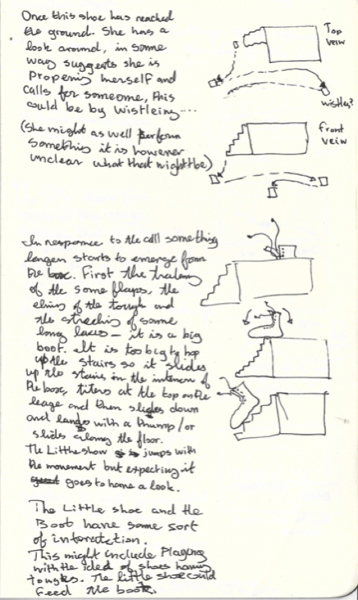 Once this shoe has reached
the ground. She has a
look around, in some
way suggests she is
Propering herself and
calls for someone, this
could be by wistleing...
(she might as well perform
something it is however
unclear what that might be)
Top
veiw
wistley?
front
veiw
In responce to the call something
larger starts to emerge from
the box. First the
of the some flaps, the
of the tough and
the streching of some
long laces - it is a big
boot. It is too big to hop
up the stairs so it slides
up the stairs in the interior of
the box, titers at the top on the
leage and then slides down
and lands with a thump/or
slides along the floor.
The Little show jumps with
the movement but expecting it
goes to have a look.
The Little shoe and the
Boot have some sort
of interatction.
This might include Playing
with the idea of shoes having
tougues. The little shoe could
feed the book.